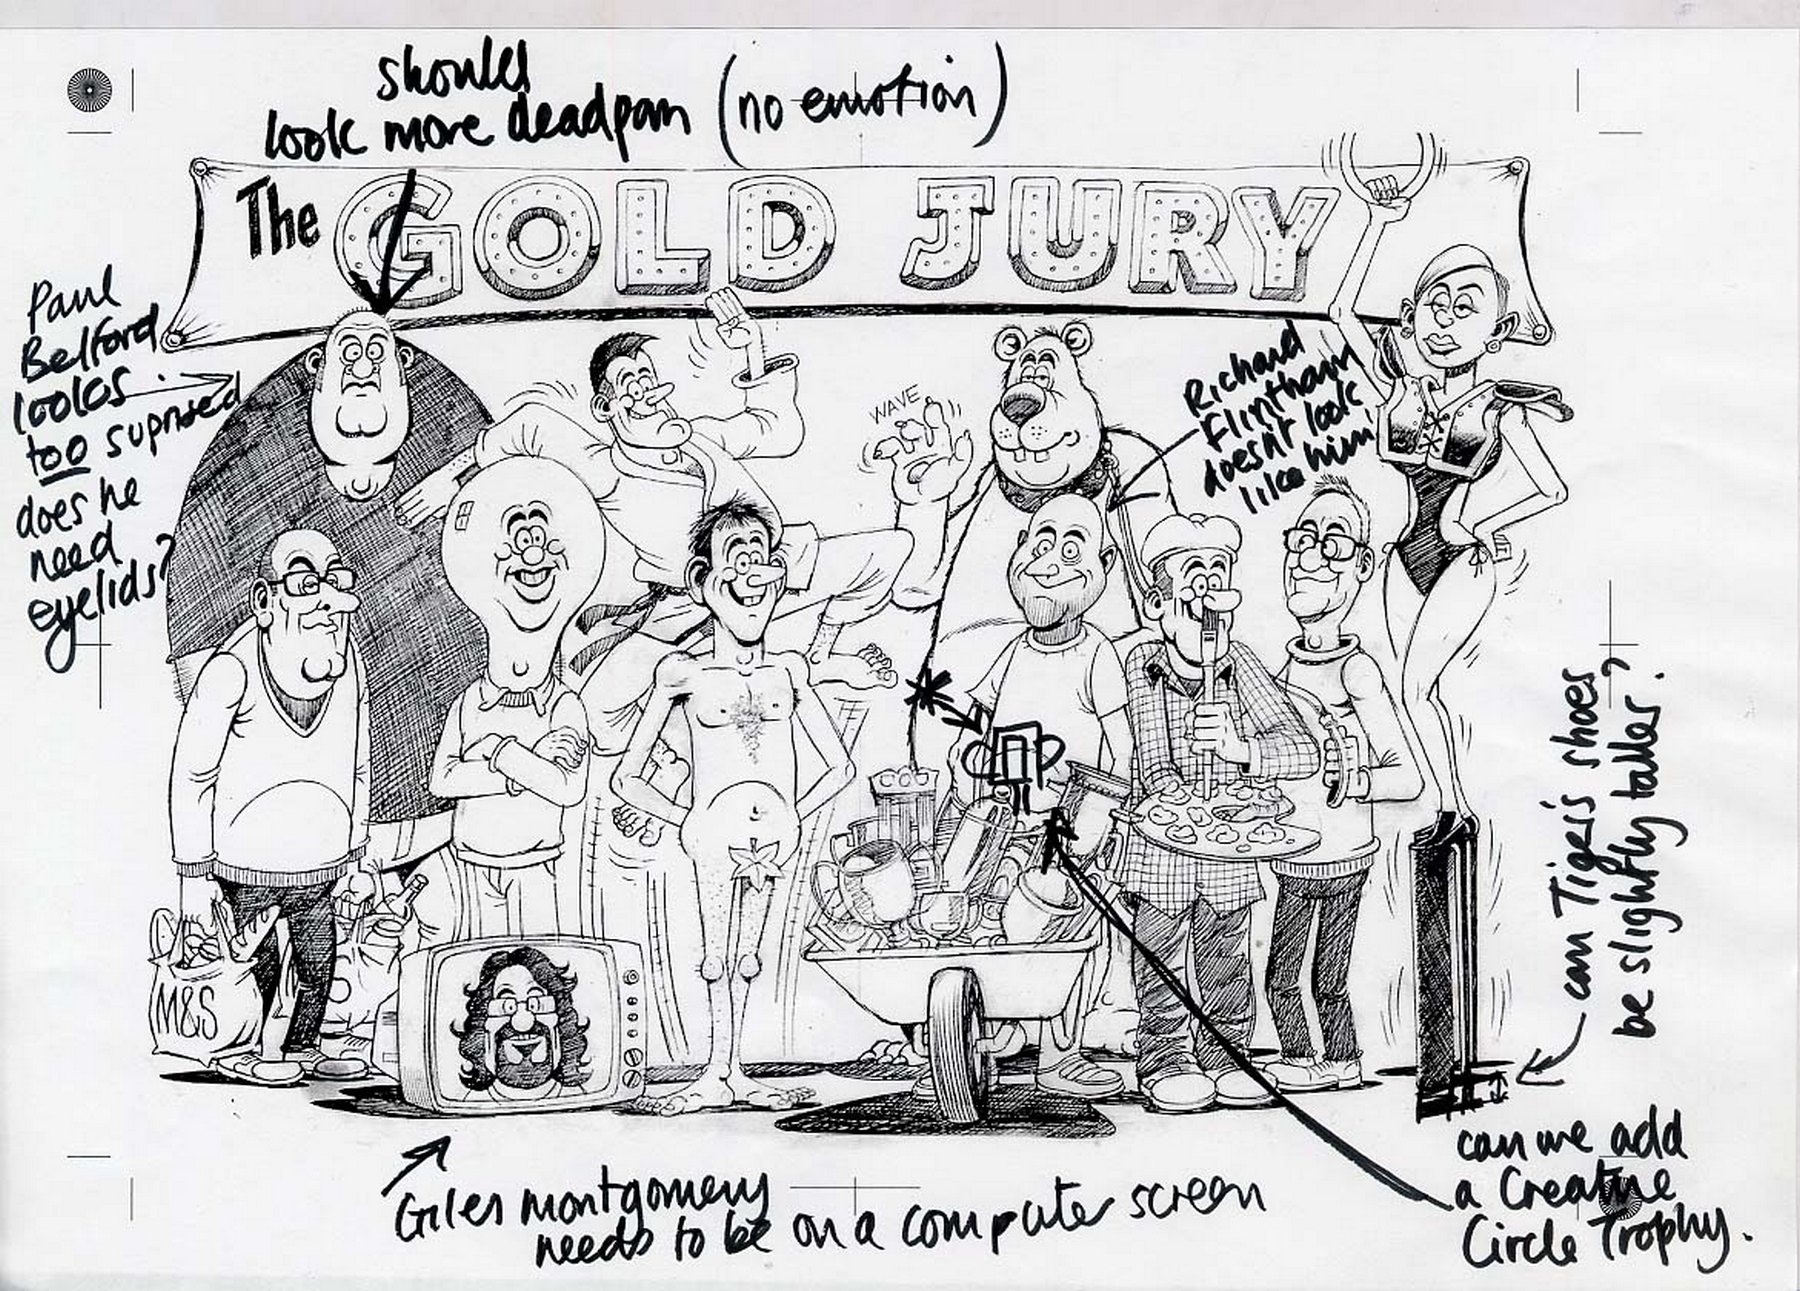 should
look more deadpan (no emotion)
The GOLD JURY
Paul
Belford
looks
too suprised
does he
need
eyelids?
WAVE
Richard
Flintham
doesn't look
like him!
can Tiger's shoes
be slightly taller?
M&S
Giles montgomery
needs to be on a computer screen
can we add
a Creative
Circle Trophy.